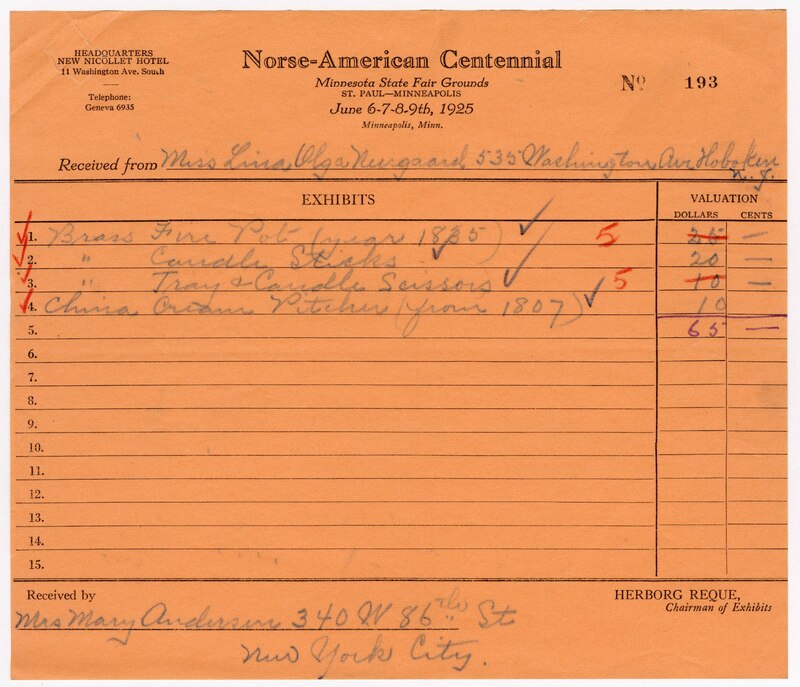 HEADQUARTERS
NEW NICOLLET HOTEL
11 Washington Ave. South
Telephone:
Geneva 6935
Norse-American Centennial
Minnesota State Fair Grounds
ST. PAUL—MINNEAPOLIS
June 6-7-8-9th, 1925
Minneapolis, Minn.
Nº 193
Received from Miss Lina Olga Neurgaard 535 Washington Ave Hoboken
N. J.
EXHIBITS
VALUATION
DOLLARS CENTS
1. Brass Fire Pot (year 1835) 5 25 —
2. " Candle Sticks 20 —
3. " Tray & Candle Scissors 5 10 —
4. China Cream Pitcher (from 1807) 10
5. 65 —
6.
7.
8.
9.
10.
11.
12.
13.
14.
15.
Received by
HERBORG REQUE,
Chairman of Exhibits
Mrs Mary Anderson 340 W 86th St
New York City.